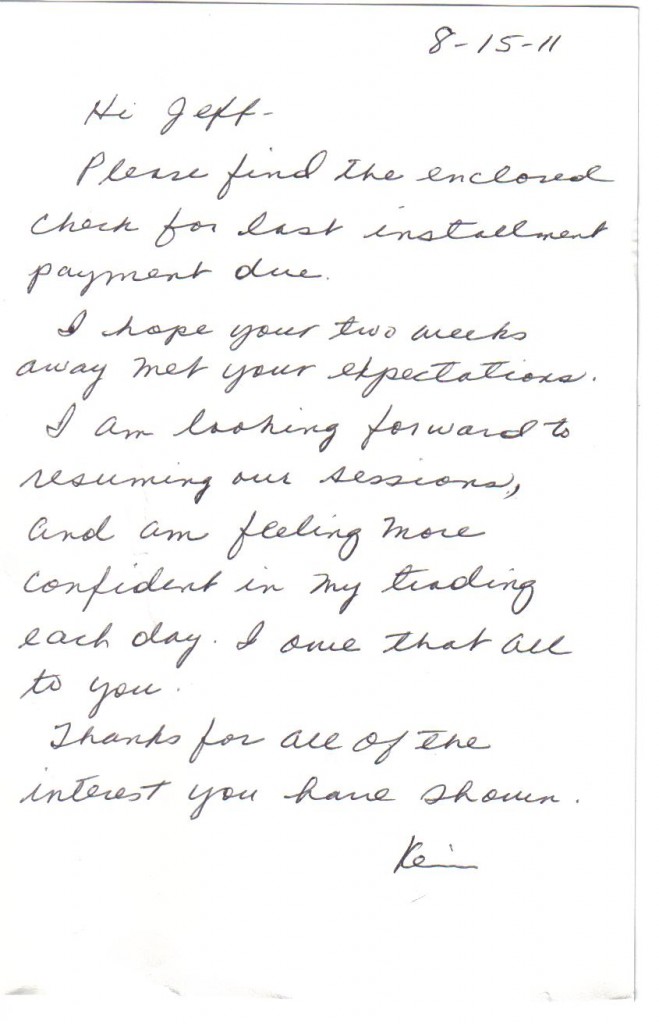 8-15-11
Hi Jeff-
Please find the enclosed
check for last installment
payment due.
I hope your two weeks
away met your expectations.
I am looking forward to
resuming our sessions,
and am feeling more
confident in my trading
each day. I owe that all
to you.
Thanks for all of the
interest you have shown.